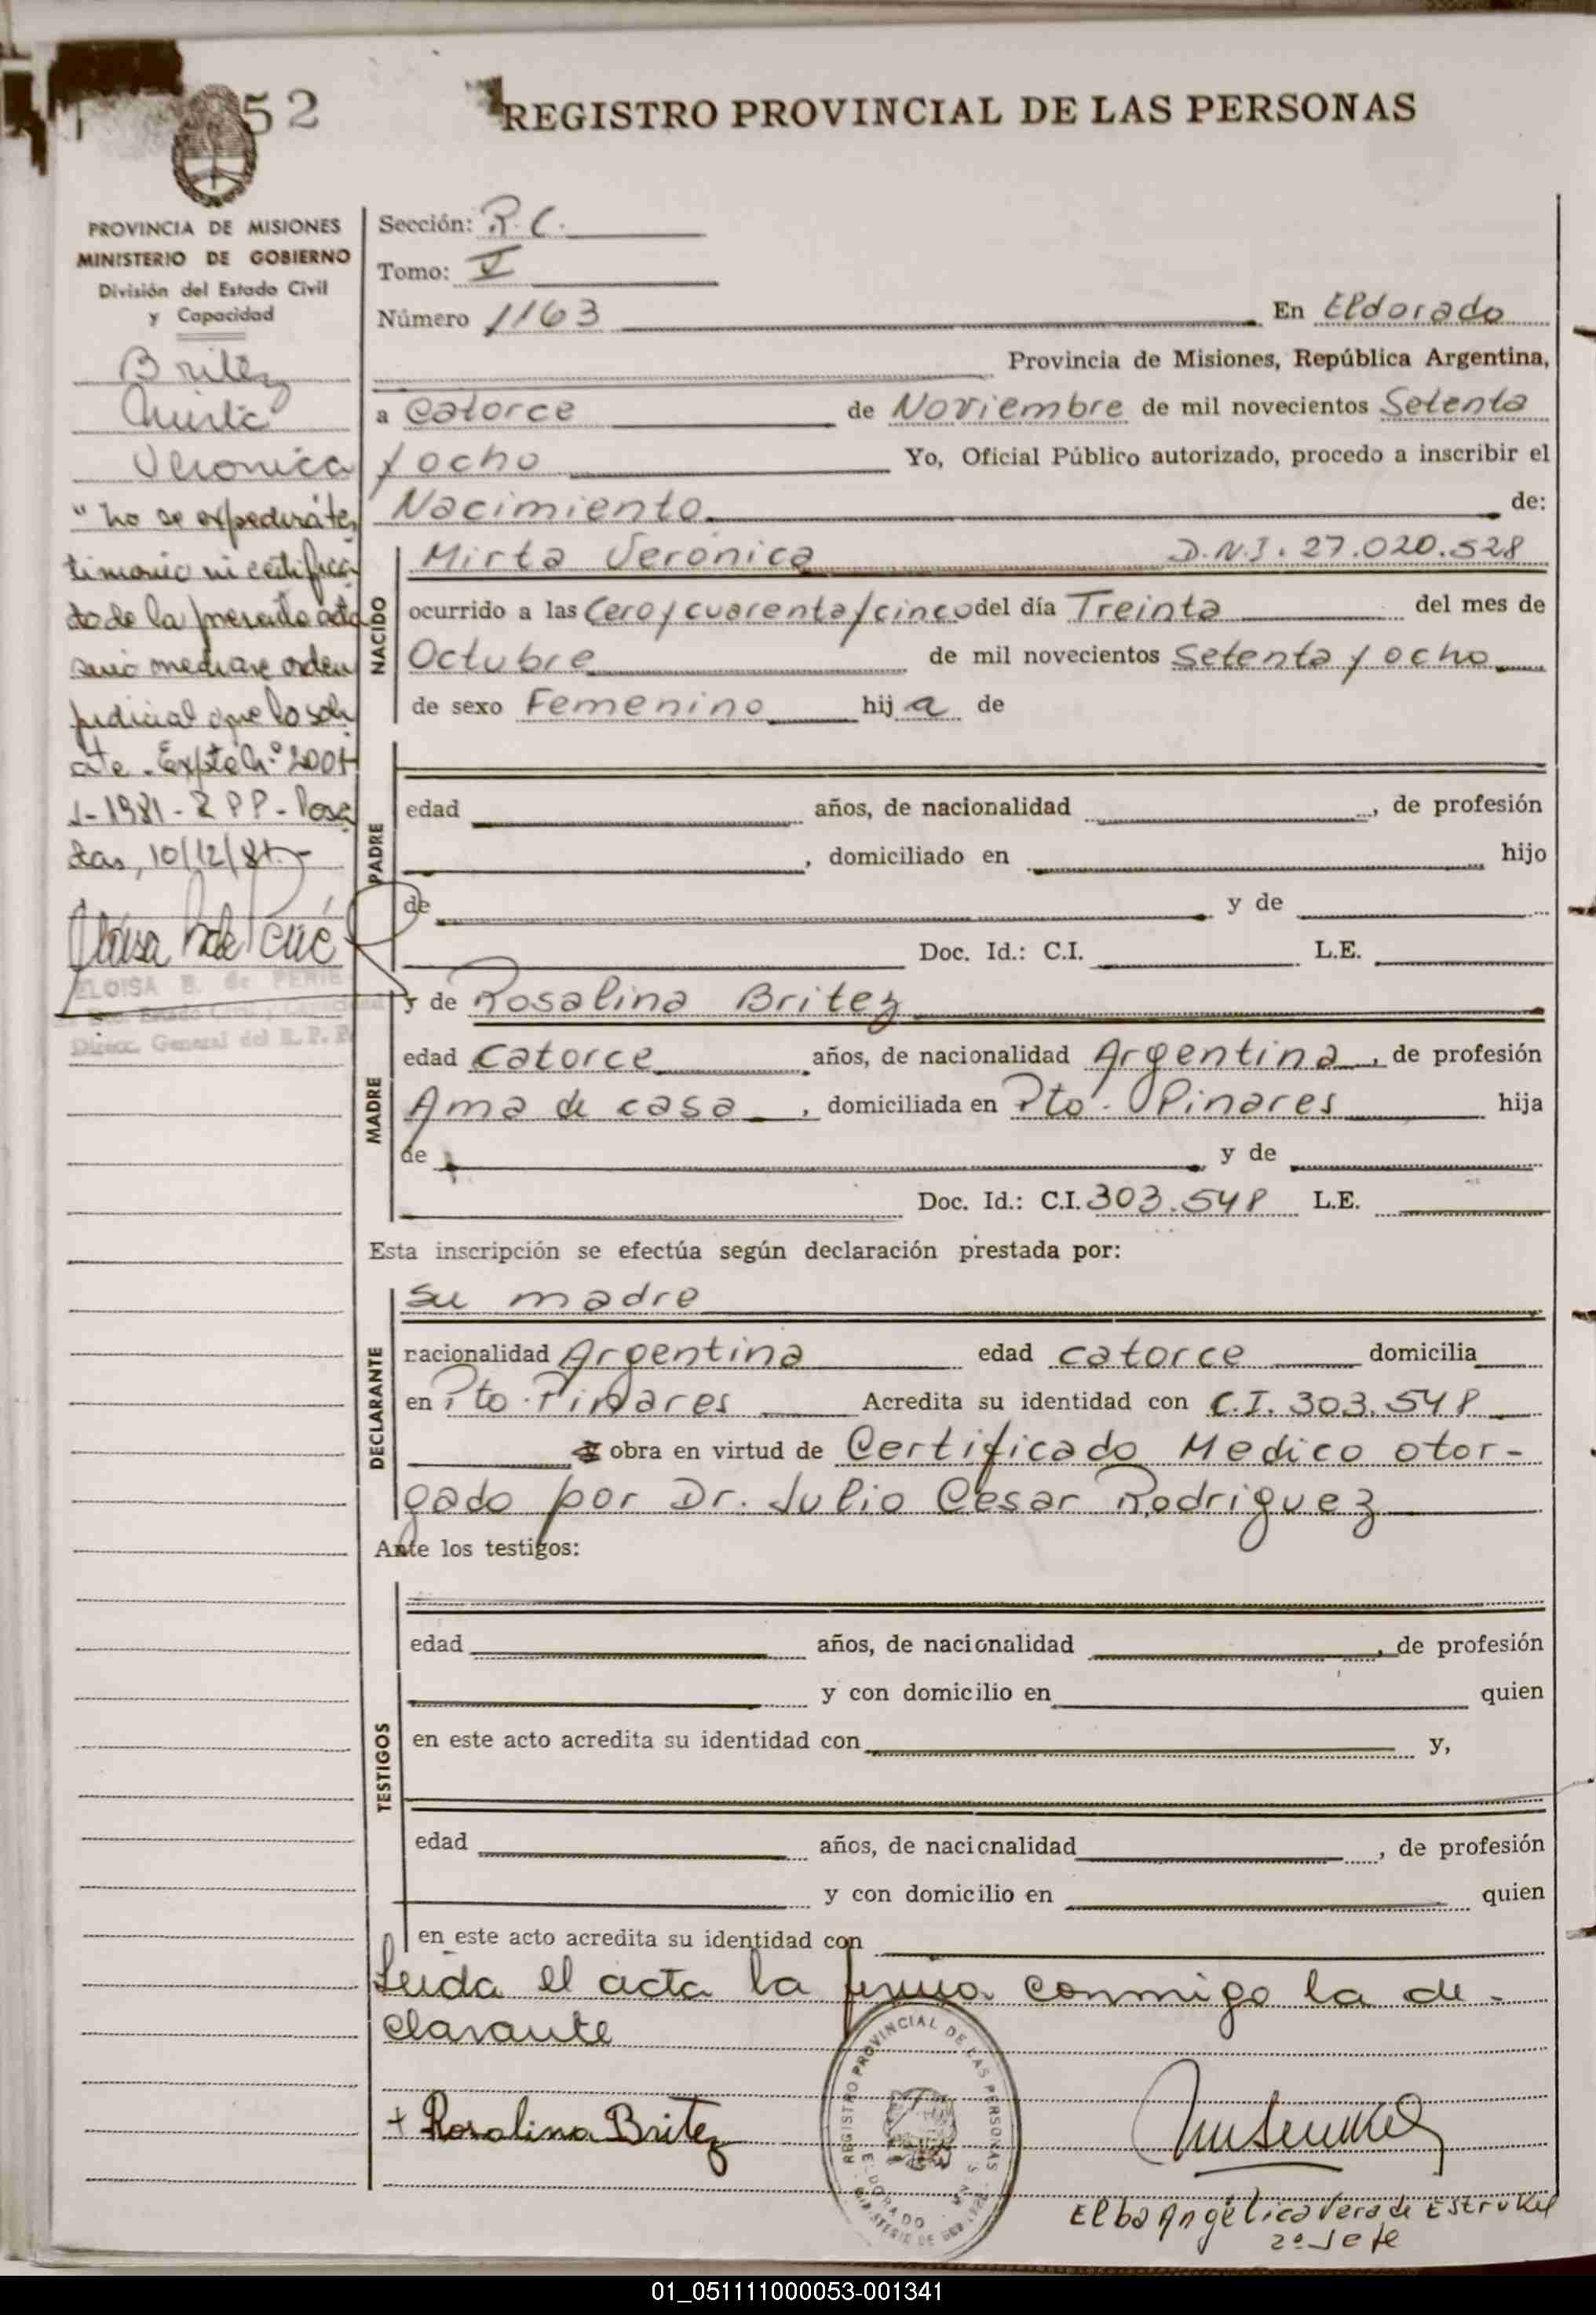 52
REGISTRO PROVINCIAL DE LAS PERSONAS
PROVINCIA DE MISIONES
MINISTERIO DE GOBIERNO
División del Estado Civil
y Capacidad
Britez
Mirta
Veronica
"No se expedirá tes
timonio ni certifica
do de la presente acta
sino mediare orden
judicial que lo soli
cite. Expte N.º 2001
1981 - R P P - Posa
das, 10/12/81.-
ELOISA B. de PERIE
Direcc. General del R. P. P.
Sección: R. C.
Tomo: V
Número 1163 En Eldorado
Provincia de Misiones, República Argentina,
a Catorce de Noviembre de mil novecientos Setenta
y ocho Yo, Oficial Público autorizado, procedo a inscribir el
Nacimiento de:
NACIDO
Mirta Verónica D.N.I. 27.020.528
ocurrido a las Cero y cuarenta y cinco del día Treinta del mes de
Octubre de mil novecientos Setenta y ocho
de sexo Femenino hij a de
PADRE
edad años, de nacionalidad , de profesión
, domiciliado en hijo
de y de
Doc. Id.: C.I. L.E.
MADRE
y de Rosalina Britez
edad Catorce años, de nacionalidad Argentina, de profesión
Ama de casa, domiciliada en Pto. Pinares hija
de y de
Doc. Id.: C.I. 303.548 L.E.
Esta inscripción se efectúa según declaración prestada por:
DECLARANTE
Su madre
nacionalidad Argentina edad catorce domicilia
en Pto. Pinares Acredita su identidad con C.I. 303.548
obra en virtud de Certificado Medico otor-
gado por Dr. Julio Cesar Rodriguez
Ante los testigos:
TESTIGOS
edad años, de nacionalidad , de profesión
y con domicilio en quien
en este acto acredita su identidad con y,
edad años, de nacionalidad , de profesión
y con domicilio en quien
en este acto acredita su identidad con
Leida el acta la firma conmigo la de-
clarante
+ Rosalina Britez
REGISTRO PROVINCIAL DE LAS PERSONAS
ELDORADO
MINISTERIO DE GOBIERNO
Elba Angélica Vera de Estrukel
2º Jefe
01_051111000053-001341